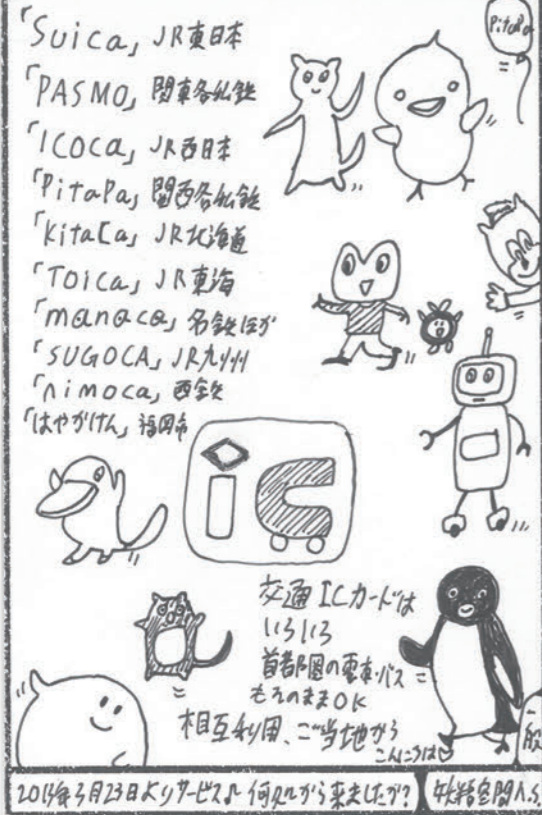 「Suica」JR東日本
PitaPa
「PASMO」関東各私鉄
「ICOCA」JR西日本
「PiTaPa」関西各私鉄
「Kitaca」JR北海道
「TOICA」JR東海
「manaca」名鉄ほか
「SUGOCA」JR九州
「nimoca」西鉄
「はやかけん」福岡市
ic
交通ICカードは
いろいろ
首都圏の電車・バス
もそのままOK
相互利用、ご当地から
こんにちは♡
一般
2013年3月23日よりサービス♪ 何処から来ましたか?